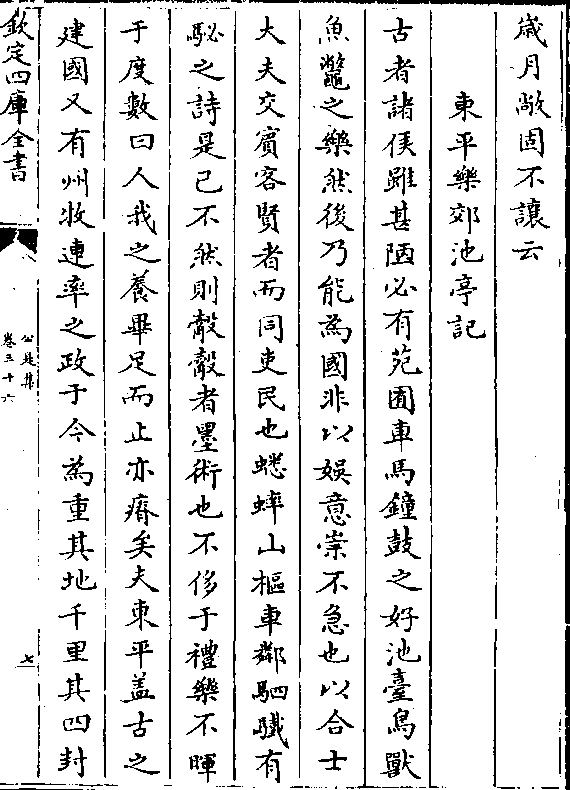 歲月敞固不讓云
東平樂郊池亭記
古者諸侯雖甚陋必有苑囿車馬鐘鼓之好池臺鳥獸
魚鼈之樂然後乃能為國非以娛意崇不急也以合士
大夫交賓客賢者而同吏民也蟋蟀山樞車鄰駟驖有
駜之詩是已不然則觳觳者墨術也不侈于禮樂不暉
于度數曰人我之養畢足而止亦瘠矣夫東平盖古之
建國又有州牧連率之政于今為重其地千里其四封
欽定四庫全書
公是集
卷三十六
七